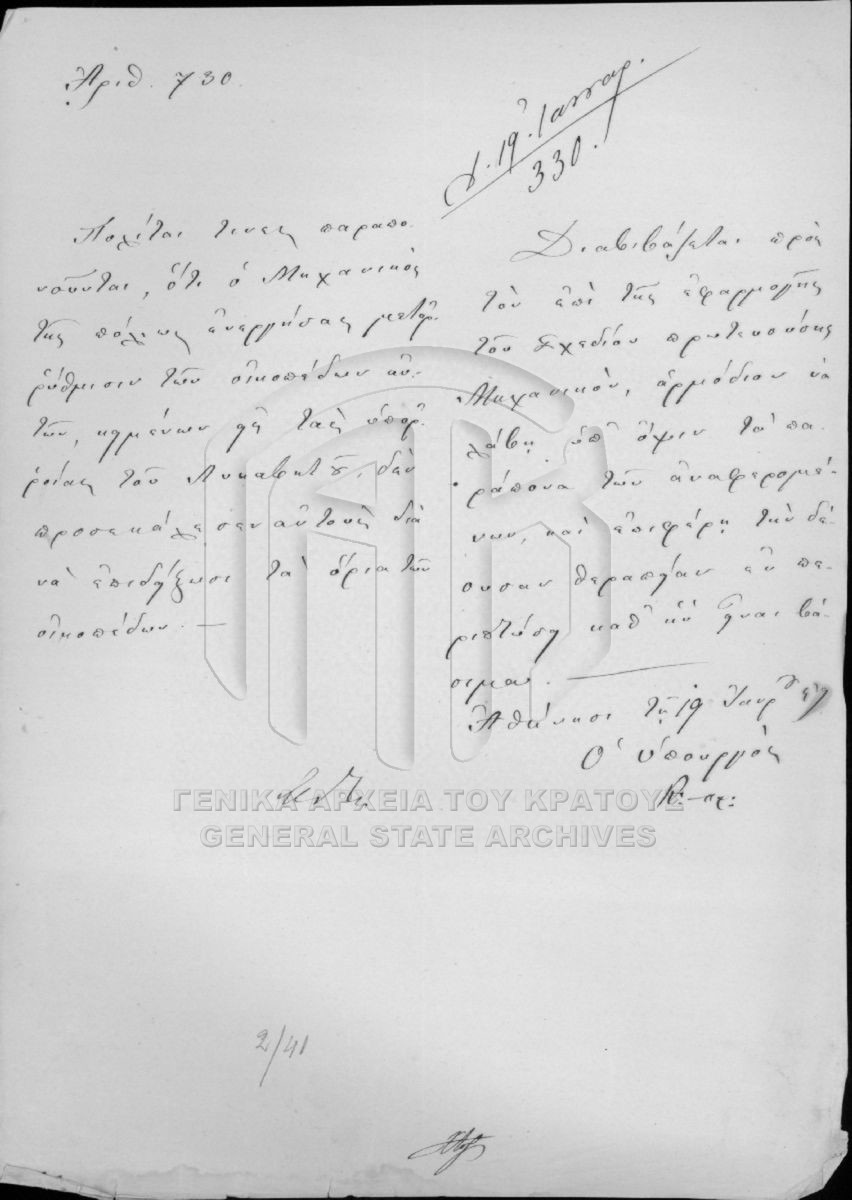 Ἀριθ. 730.
19 Ἰανουαρ.
330.
Πολῖται τινες παραπο-
νοῦνται, ὅτι ὁ Μηχανικὸς
τῆς πόλεως ἐνεργήσας μεταῤ-
ῥύθμισιν τῶν οἰκοπέδων αὐ-
τῶν, κειμένων εἰς τὰς ὑπορ-
ροίας τοῦ Λυκαβητοῦ, δὲν
προσεκάλεσεν αὐτοὺς διὰ
νὰ ἐπιδείξωσι τὰ ὅρια τῶν
οἰκοπέδων. —
Διαβιβάζεται πρὸς
τὸν ἐπὶ τῆς ἐφαρμογῆς
τοῦ Σχεδίου πρωτευούσης
Μηχανικὸν, ἁρμόδιον νὰ
λάβῃ ὑπ' ὄψιν τὰ πα-
ράπονα τῶν ἀναφερομέ-
νων, καὶ ἐπιφέρῃ τὴν δέ-
ουσαν θεραπείαν ἐν πε-
ριπτώσῃ καθ' ἣν εἶναι βά-
σιμα. —
Ἀθήνησι τῇ 19 Ἰανρ
Ὁ Ὑπουργὸς
2/41
ΓΕΝΙΚΑ ΑΡΧΕΙΑ ΤΟΥ ΚΡΑΤΟΥΣ
GENERAL STATE ARCHIVES